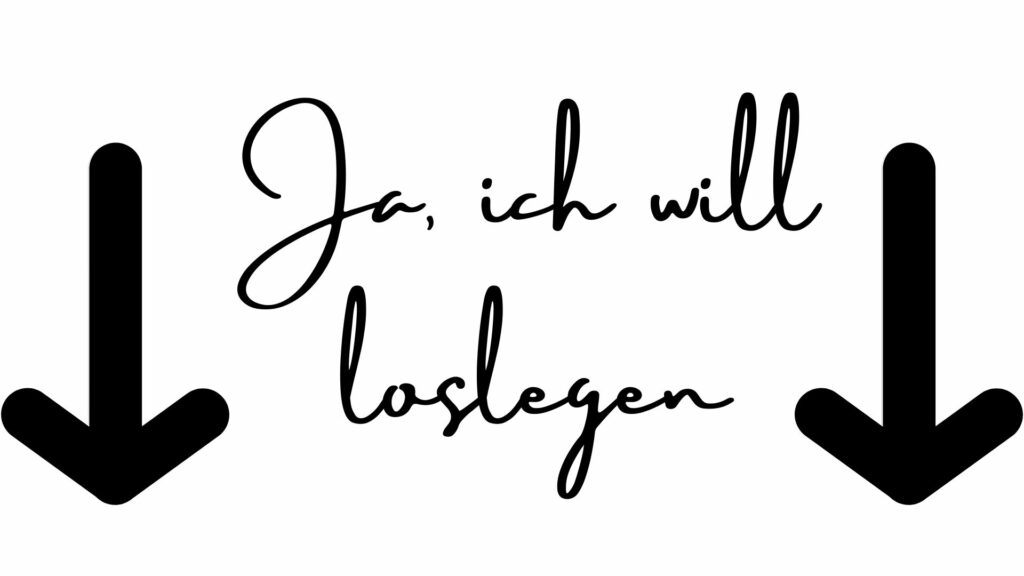 Ja, ich will
loslegen